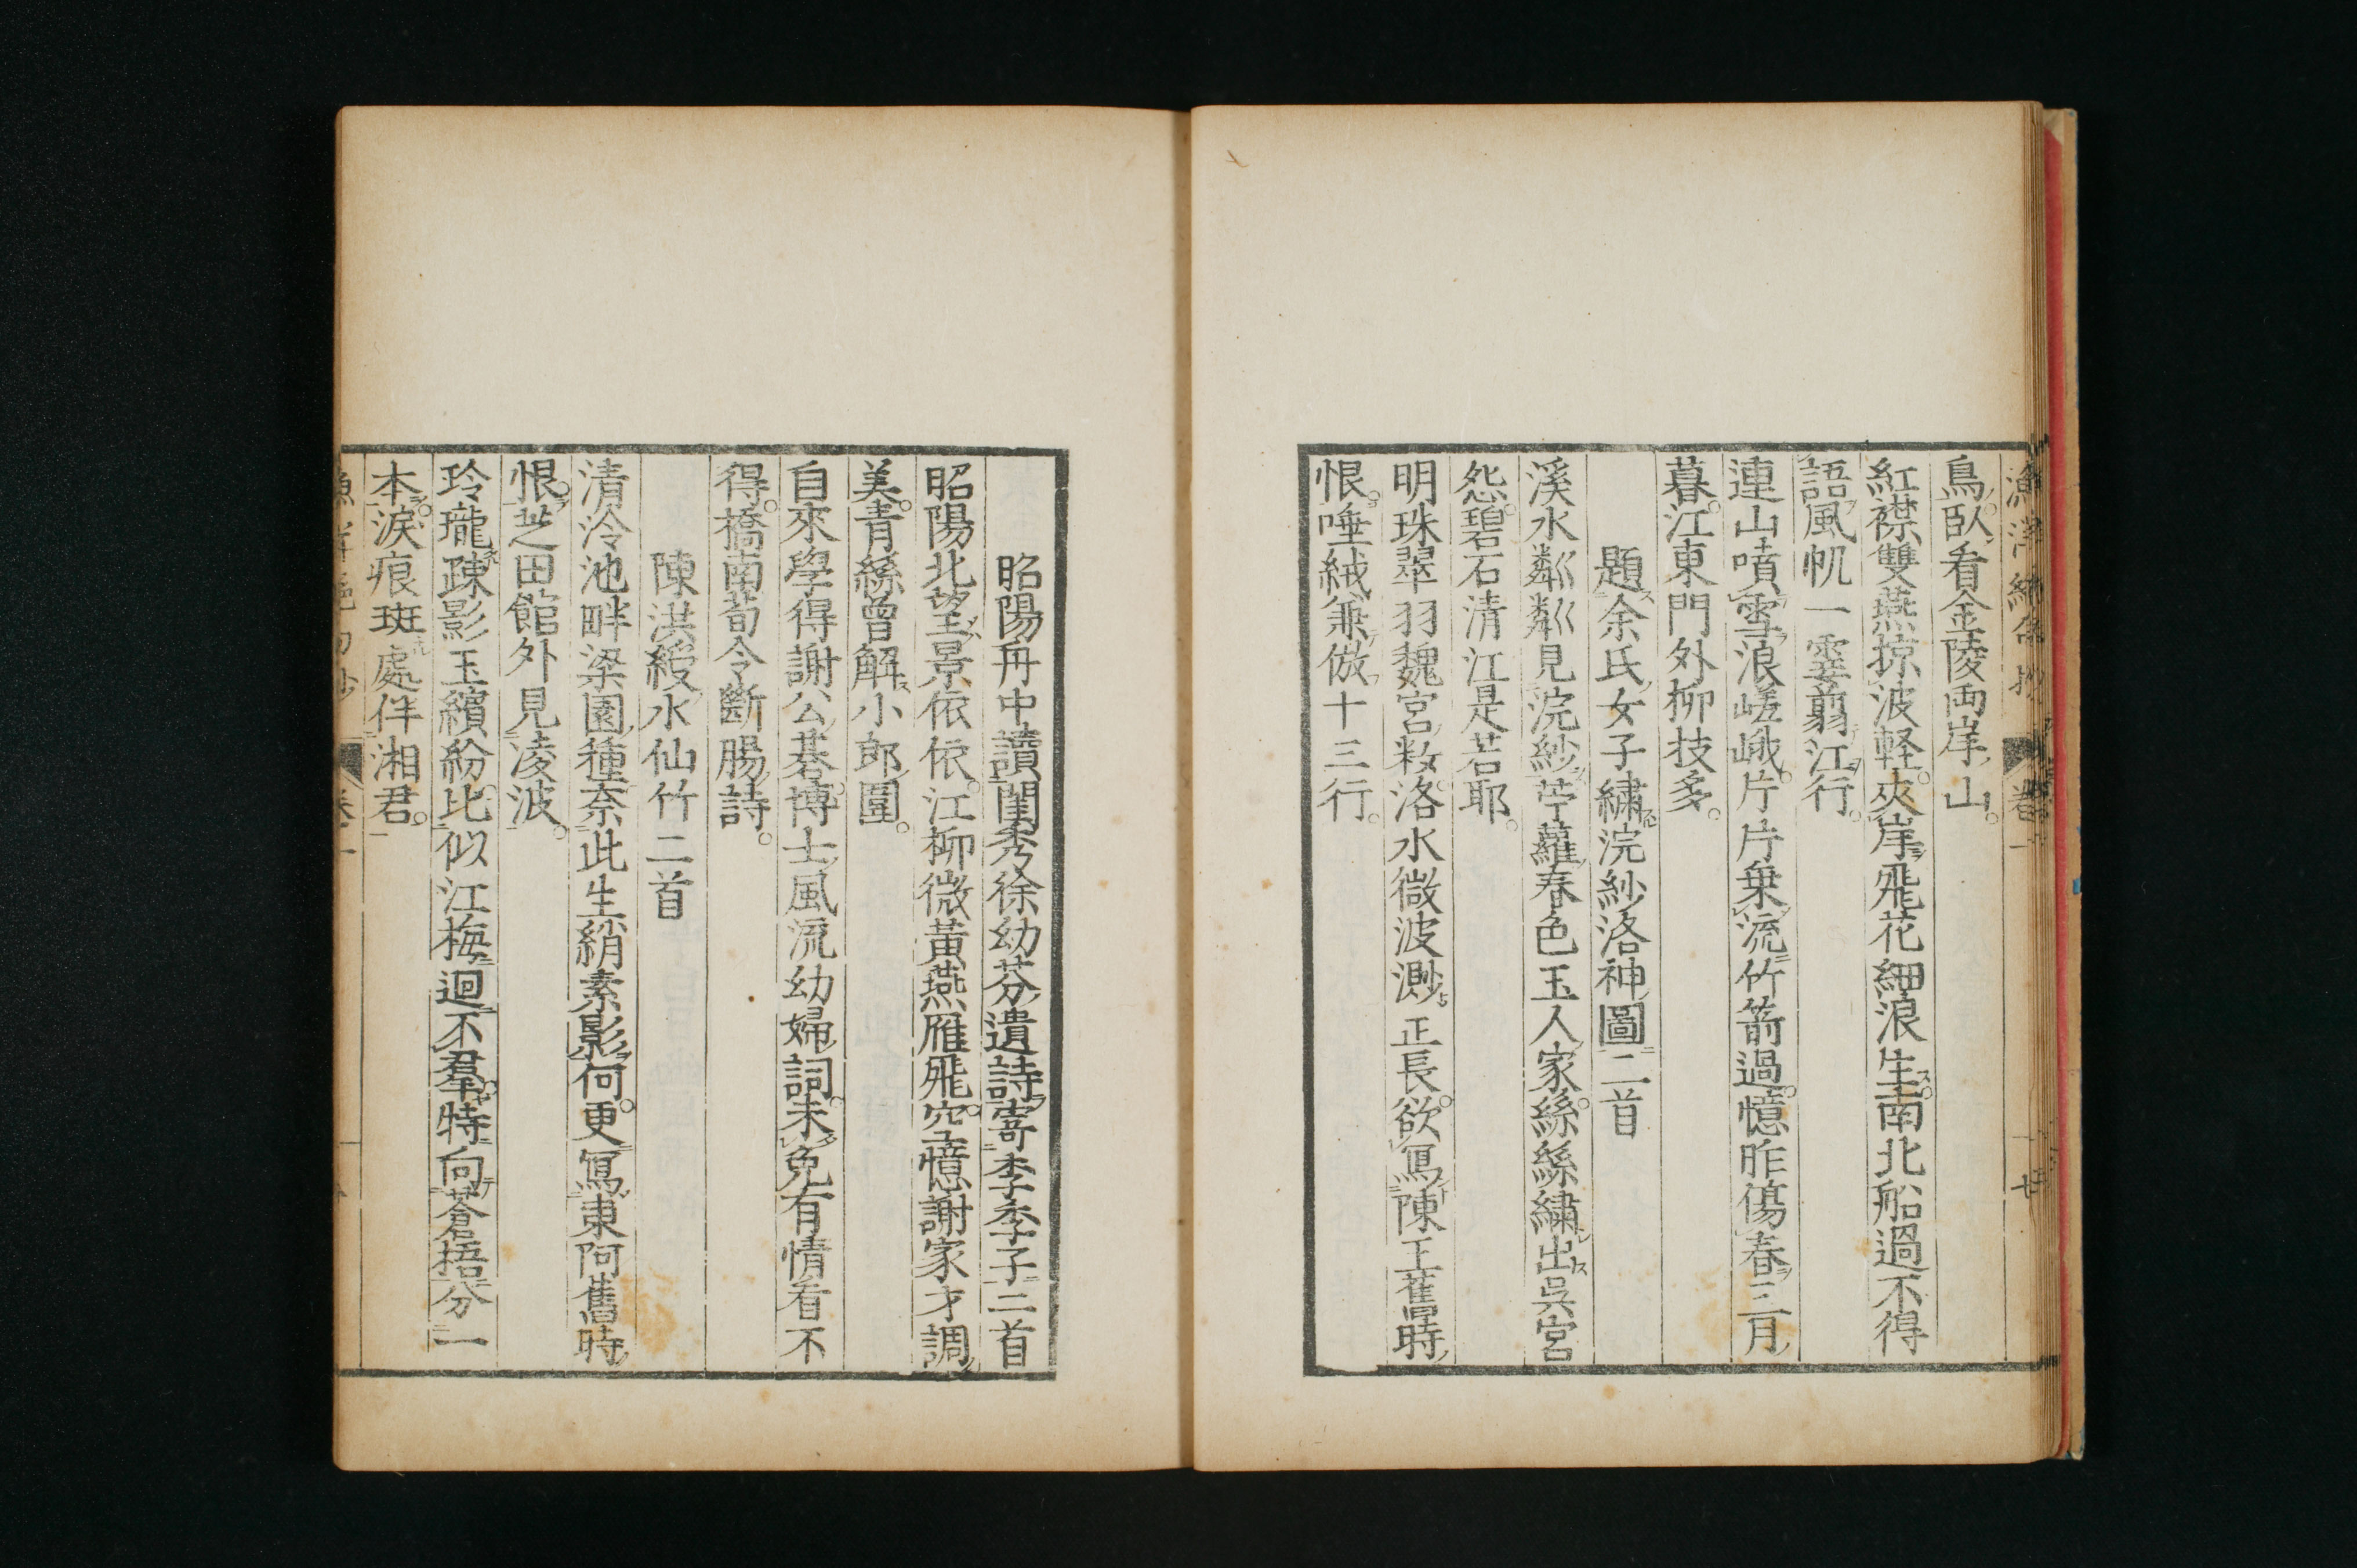 漁洋絶句抄 卷一
鳥臥看金陵両岸山
紅襟雙燕掠波軽夾岸飛花細浪生南北船過不得
語風帆一霎翦江行
連山噴雪浪嵯峨片片乗流竹箭過憶昨傷春三月
暮江東門外柳枝多
題余氏女子繡浣紗洛神圖二首
溪水粼粼見浣紗苧蘿春色玉人家絲絲繡出呉宮
怨碧石清江是若耶
明珠翠羽魏宮粧洛水微波渺正長欲寫陳王舊時
恨唾絨兼倣十三行
昭陽舟中讀閨秀徐幼芬遺詩寄李季子二首
昭陽北望景依依江柳微黃燕雁飛空憶謝家才調
美青絲曾解小郎圍
自來學得謝公碁博士風流幼婦詞未免有情看不
得橋南荀令斷腸詩
陳洪綬水仙竹二首
清泠池畔梁園種奈此生綃素影何更寫東阿舊時
恨芝田館外見凌波
玲瓏疎影玉繽紛比似江梅迥不羣特向蒼梧分一
本淚痕斑處伴湘君